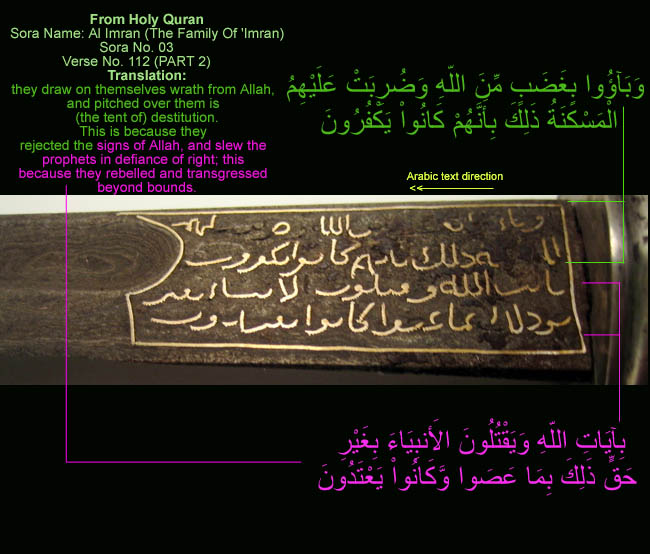 From Holy Quran
Sora Name: Al Imran (The Family Of 'Imran)
Sora No. 03
Verse No. 112 (PART 2)
Translation:
they draw on themselves wrath from Allah,
and pitched over them is
(the tent of) destitution.
This is because they
rejected the signs of Allah, and slew the
prophets in defiance of right; this
because they rebelled and transgressed
beyond bounds.
وَبَآؤُوا بِغَضَبٍ مِّنَ اللّهِ وَضُرِبَتْ عَلَيْهِمُ
الْمَسْكَنَةُ ذَلِكَ بِأَنَّهُمْ كَانُواْ يَكْفُرُونَ
Arabic text direction
<----------
ذلك بانهم كانوا يكفرون
الله ويقتلون الانبياء بغير
ذلك بما عصوا وكانوا يعتدون
بِآيَاتِ اللّهِ وَيَقْتُلُونَ الأَنبِيَاءَ بِغَيْرِ
حَقٍّ ذَلِكَ بِمَا عَصَوا وَّكَانُواْ يَعْتَدُونَ